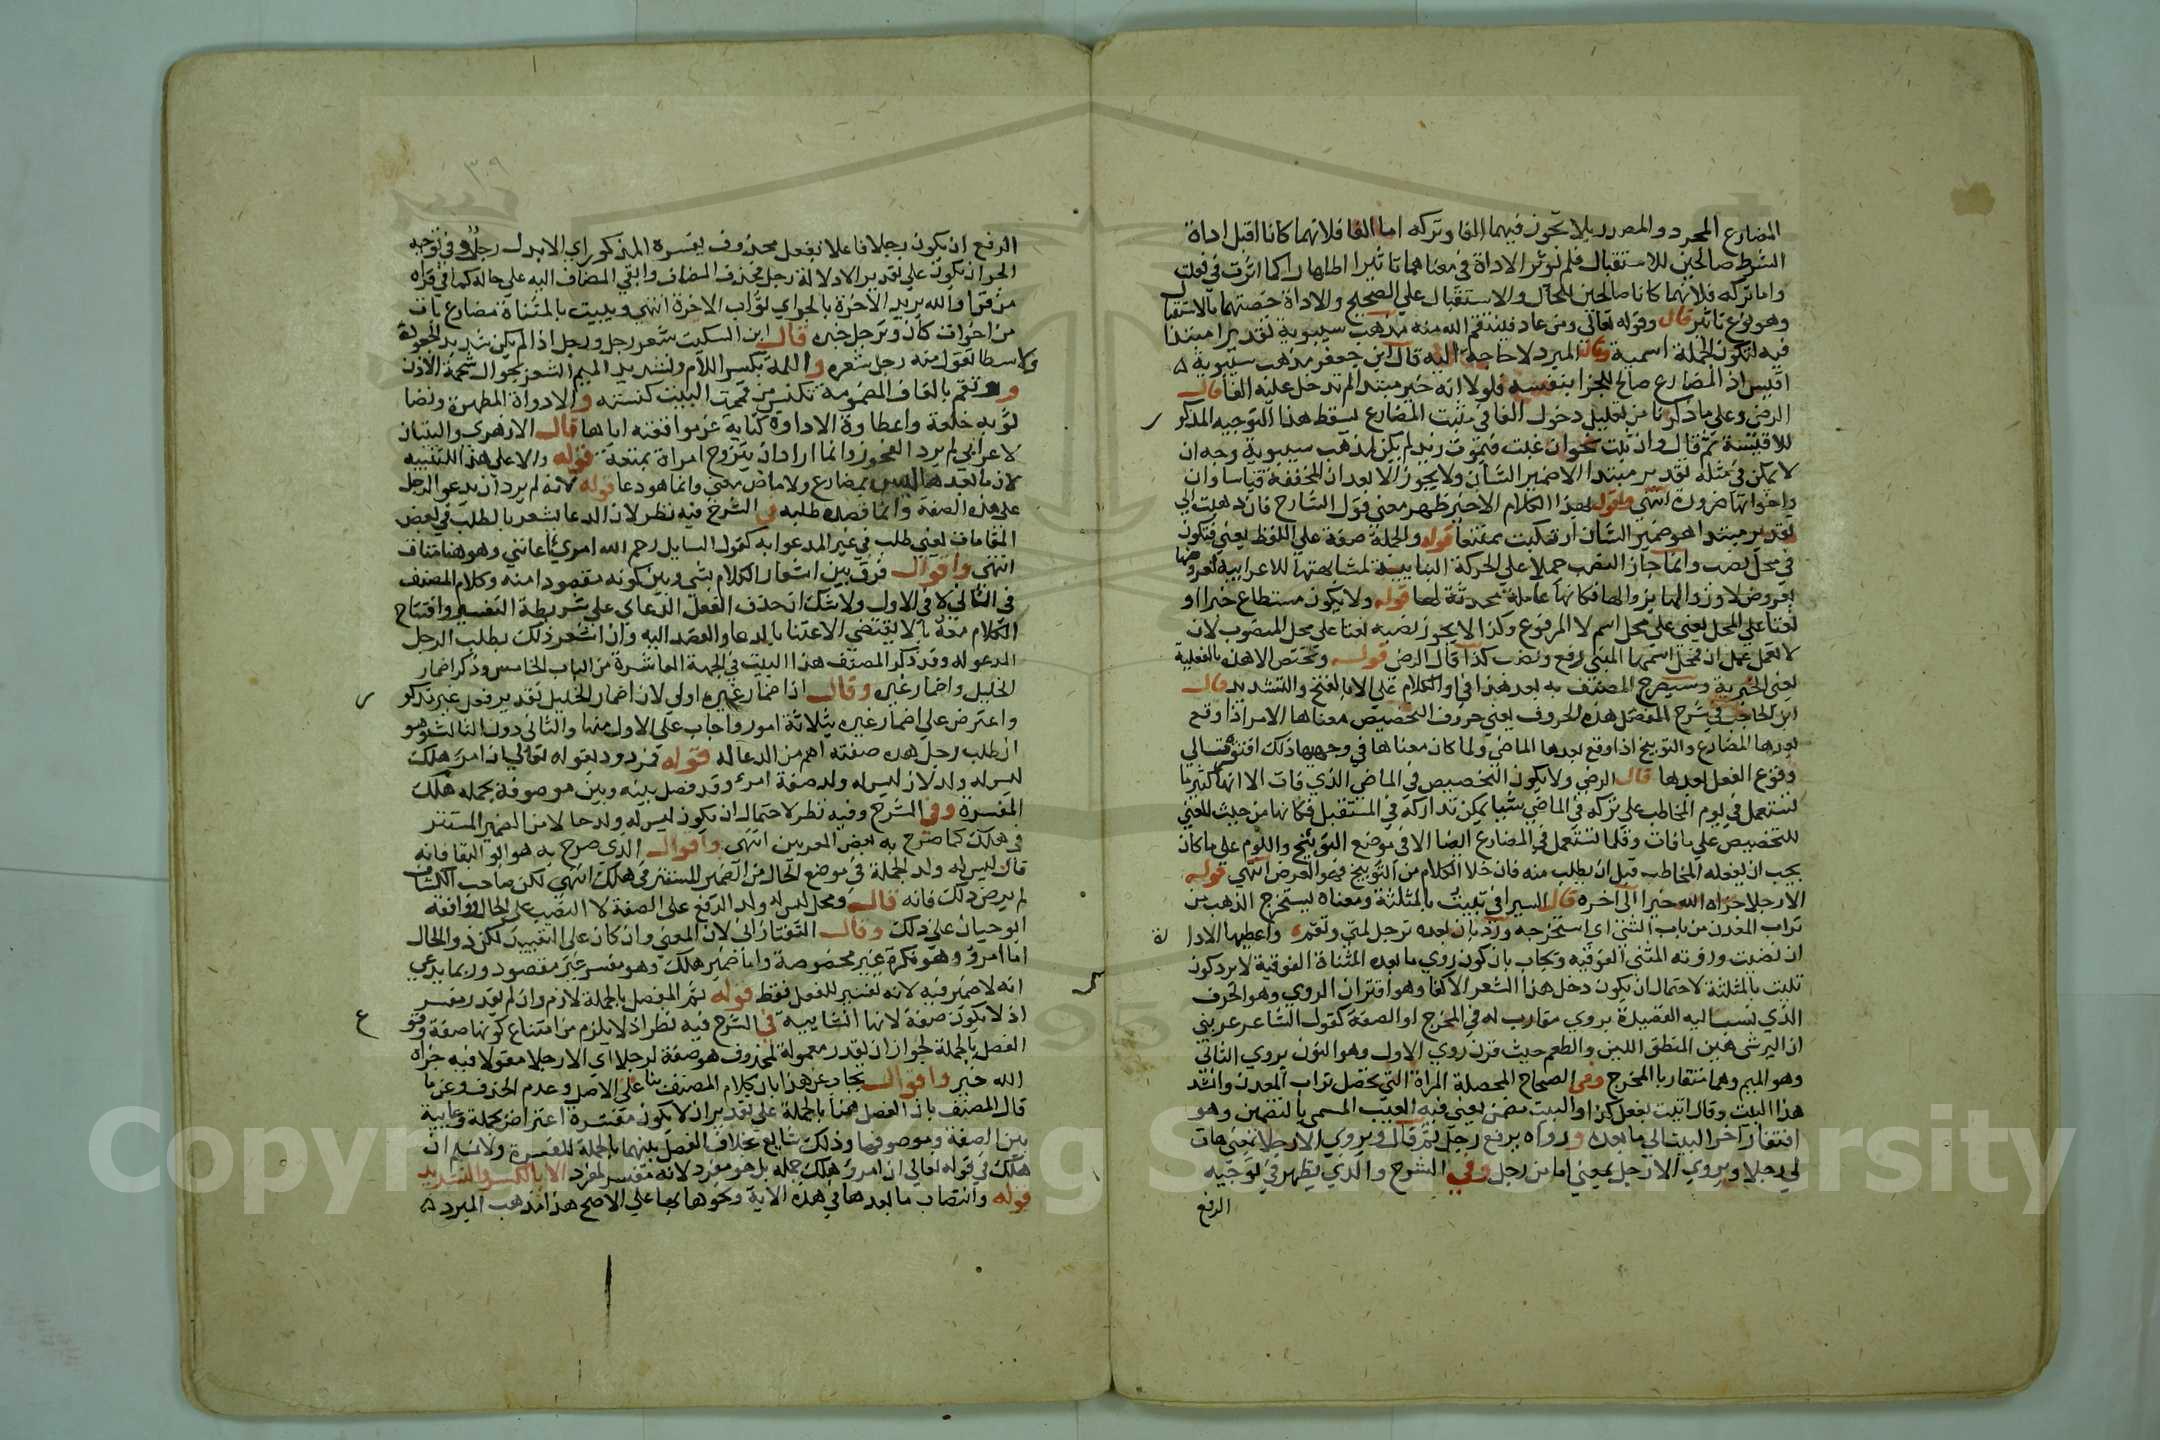 المضارع المجرد والمصدر بلا يجوز فيهما الفا وتركه اما الفا فلانهما كانا قبل اداة
الشرط صالحين للاستقبال فلم توثر الاداة في معناهما تاثيرا ظاهرا كما اثرت في فعلت
واما تركه فلانهما كانا صالحين للحال والاستقبال علي الصحيح والاداة خصتهما بالاستقبا
وهو نوع تاثير قال وقوله تعالي ومن عاد فينتقم الله منه مذهب سيبوية تقدير مبتدا
فيه لتكون الجملة اسمية وقال المبرد لا حاجة اليه قال ابن جعفر مذهب سيبوية
اقيس اذ المضارع صالح للجزا بنفسه فلولا انه خبر مبتدا لم تدخل عليه الفا قال
الرضي وعلي ما ذكرنا من تعليل دخول الفا في مثبت المضارع يسقط هذا التوجيه المذكو
للاقيسة ثم قال وان ثبت نحو ان غبت فيموت زيد لم يكن لمذهب سيبوية وجه ان
لا يمكن في مثله تقدير مبتدا الا ضمير الشان ولا يجوز الا بعد ان المخففة قياسا وان
واخواتها ضرورة انتهي واقول لهذا الكلام الاخير ظهر معني قول الشارح فان ذهبت الي
تقدير مبتدا هو ضمير الشان ارتكبت ممتنعا قوله والجملة صفة علي اللفظ يعني فتكون
في محل نصب وانما جاز النصب حملا علي الحركة البنايية لمشابهتها للاعرابية لعروضها
بعروض لا وزوالها بزوالها فكانها عاملة محدثة لها قوله ولا يكون مستطاع خبرا او
نعتا علي المحل يعني علي محل اسم لا المرفوع وكذا لا يجوز نصبه نعتا علي محل المنصوب لان
لا تعمل عمل ان فمحل اسمها المبني رفع ونصب كذا قال الرضي قوله وتختص الا هذه بالفعلية
يعني الخبرية وسيصرح المصنف به بعد هذا في اول الكلام علي الا بالفتح والتشديد قال
ابن الحاجب في شرح المفصل هذه الحروف يعني حروف التحضيض معناها الامر اذا وقع
بعدها المضارع والتوبيخ اذا وقع بعدها الماضي ولما كان معناها في وجهيها ذلك افتقرت الي
وقوع الفعل بعدها قال الرضي ولا يكون التحضيض في الماضي الذي فات الا انها كثيرا ما
تستعمل في لوم المخاطب علي تركه في الماضي شيا يمكن تداركه في المستقبل فكانها من حيث المعني
للتحضيض علي ما فات وقلما تستعمل في المضارع ايضا الا في موضع التوبيخ واللوم علي ما كان
يجب ان يفعله المخاطب قبل ان يطلب منه فان خلا الكلام من التوبيخ فهو العرض انتهي قوله
الا رجلا جزاه الله خيرا الي اخره قال السيرافي تبيث بالمثلثة ومعناه يستخرج الذهب من
تراب المعدن من باب الشئ اي استخرجه ورد بان بعده ترجل لمتي وتقم واعطيها الادا
ان نصبت وروته المثني الفوقيه ويجاب بان كون روي ما بعده المثناة الفوقية لا يرد كون
تبيت بالمثلثة لاحتمال ان يكون دخل هذا الشعر الاكفا وهو اقتران الروي وهو الحرف
الذي تنسب اليه القصيدة بروي مقارب له في المخرج او الصفة كقول الشاعر
ان البر شئ هين المنطق اللين والطعم حيث قرن روي الاول وهو النون بروي الثاني
وهو الميم وهما متقاربا المخرج وفي الصحاح المحصلة المراة التي تحصل تراب المعدن وانشد
هذا البيت وقال تبيت بفعل كذا والبيت مضمن يعني فيه العيب المسمي بالتضمين وهو
افتقار اخر البيت الي ما بعده ورواه برفع رجل ثم قال ويروي الا رجلا بمعني هات
لي رجلا ويروي الا رجل بمعني اما من رجل وفي الشرح والذي يظهر في توجيه
الرفع
٣٠٩
الرفع ان يكون رجلا فاعلا بفعل محذوف يفسره المذكور اي الا يدل رجل وفي توجيه
الجر ان يكون علي تقدير الا دلالة رجل فحذف المضاف وابقي المضاف اليه علي حاله كما في قراة
من قرا والله يريد الاخرة بالجر اي ثواب الاخرة انتهي ويبيت بالمثناة مضارع بات
من اخوات كان وترجل خبره قال ابن السكيت شعر رجل ورجل اذا لم يكن شديد الجعودة
ولا سبطا تقول منه رجل شعره واللمة بكسر اللام وتشديد الميم الشعر يجوال شحمة الاذن
وتقم بالقاف المضمومة تكنس من قممت البيت كنسته والاداوة المطهرة ونصا
توبه خلعة واعطاوة الاداوة كناية عن موافقته اياها قال الازهري والبيتان
لاعرابي لم يرد الفجور وانما اراد ان يتزوج امراة بمتعة قوله والا علي هذا للتنبيه
لان ما بعدها ليس بمضارع ولا ماض معني وانما هو دعا قوله لانه لم يرد ان يدعو الرجل
علي هذه الصفة وانما قصده طلبه في الشرح فيه نظر لان الدعا يشعر بالطلب في بعض
المقامات يعني طلب في غير المدعو به كقول السايل رحم الله امرئ اعانني وهو هنا مناف
انتهي واقول فرق بين اشعار الكلام بشئ وبين كونه مقصودا منه وكلام المصنف
في الثاني لا في الاول ولا شك ان حذف الفعل الدعاي علي شريطة التفسير وافتتاح
الكلام معه بالا يقتضي الاعتنا بالدعا والقصد اليه وان اشعر ذلك بطلب الرجل
المدعو له وقد ذكر المصنف هذا البيت في الجهة العاشرة من الباب الخامس وذكر اضمار
الخليل واضمار غيره وقال اذا اضمار غيره اولي لان اضمار الخليل تقدير فعل غير مذكو
واعترض علي اضمار غيره بثلاثة امور واجاب علي الاول منها والثاني دون الثالث وهو
ان طلب رجل هذه صفته اهم من الدعا له قوله فمردود بقوله تعالي ان امرؤ هلك
ليس له ولد لان ليس له ولد صفة امرئ وقد فصل بينه وبين موصوفه بجملة هلك
المفسرة وفي الشرح وفيه نظر لاحتمال ان يكون ليس له ولد حالا من الضمير المستتر
في هلك كما صرح به بعض المعربين انتهي واقول الذي صرح به هو ابو البقا فانه
قال ليس له ولد الجملة في موضع الحال من الضمير المستتر في هلك انتهي لكن صاحب الكشاف
لم يرض ذلك فانه قال ومحل ليس له ولد الرفع علي الصفة لا النصب علي الحال ووافقه
ابو حيان علي ذلك وقال التفتازاني لان المعني وان كان علي التقييد لكن ذو الحال
اما امرؤ وهو نكرة غير مخصوصة واما ضمير هلك وهو مفسر غير مقصود وربما يدعي
انه لا ضمير فيه لانه تفسير للفعل فقط قوله ثم الفصل بالجملة لازم وان لم تقدر مفسر
اذ لا يكون صفة لانها انشايية في الشرح فيه نظر اذ لا يلزم من امتناع كونها صفة وقو
الفصل بالجملة لجواز ان تقدر معمولة لمحذوف هو صفة لرجلا اي الا رجلا مقولا فيه جزاه
الله خير واقول يجاب عن هذا بان كلام المصنف بنا علي الاصل وعدم الحذف وعن ما
قال المصنف بان الفصل هنا بالجملة علي تقدير ان لا يكون مفسرة اعتراض بجملة دعايية
بين الصفة وموصوفها وذلك شايع بخلاف الفصل بينهما بالجملة المفسرة ولا نسلم ان
هلك في قوله تعالي ان امرؤ هلك جملة بل هو مفرد لانه مفسر لمفرد الا بالكسر والتشديد
قوله وانتصاب ما بعدها في هذه الاية ونحوها بها علي الاصح هذا مذهب المبرد
Copyright © King Saud University